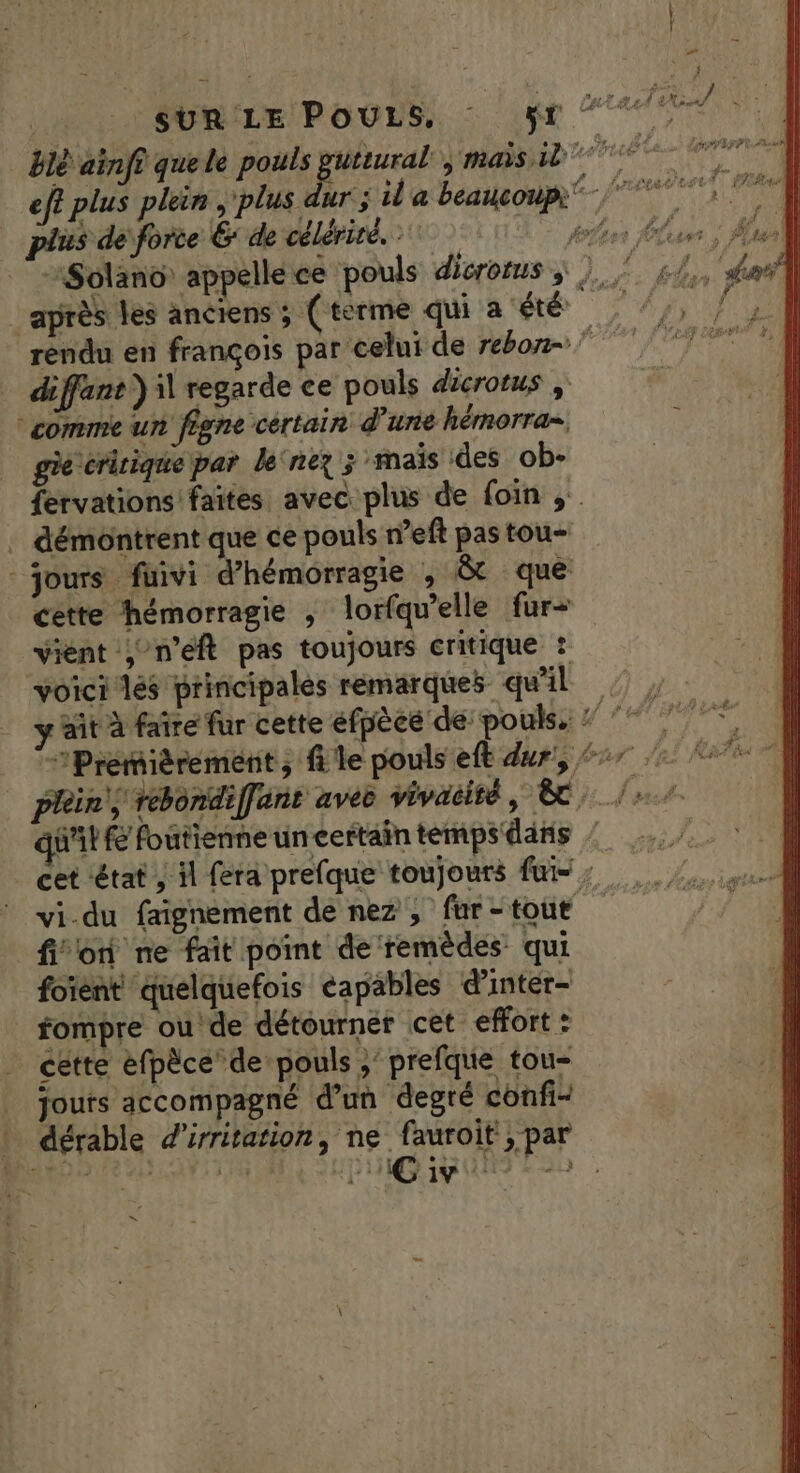 SUR LE POULS. 51
blé ainſi que le pouls guttural, mais il
eſt plus plein, plus dur ; il a beaucoup
plus de force & de célérité.
Solano appelle ce pouls dicrotus,
après les anciens ; (terme qui a été
rendu en françois par celui de rebon-
diſſant) il regarde ce pouls dicrotus,
comme un ſigne certain d'une hémorra-
gie critique par le nez ; mais des ob-
ſervations faites avec plus de ſoin,
démontrent que ce pouls n'eſt pas tou-
jours ſuivi d'hémorragie, & que
cette hémorragie, lorſqu'elle ſur-
vient, n'eſt pas toujours critique :
voici lés principales remarques qu'il
y ait à faire ſur cette eſpècé de pouls.
Premièrement, ſi le pouls eſt dur,
plein, rebondiſſant avec vivacité, &
qu'il ſe ſoutienne un certain temps dans
cet état, il ſera preſque toujours ſui-
vi du ſaignement de nez, ſur-tout
ſi on ne fait point de remèdes qui
ſoient quelquefois capables d'inter-
rompre ou de détourner cet effort :
cette eſpèce de pouls, preſque tou-
jours accompagné d'un degré conſi-
dérable d'irritation, ne ſauroit, par
C iv